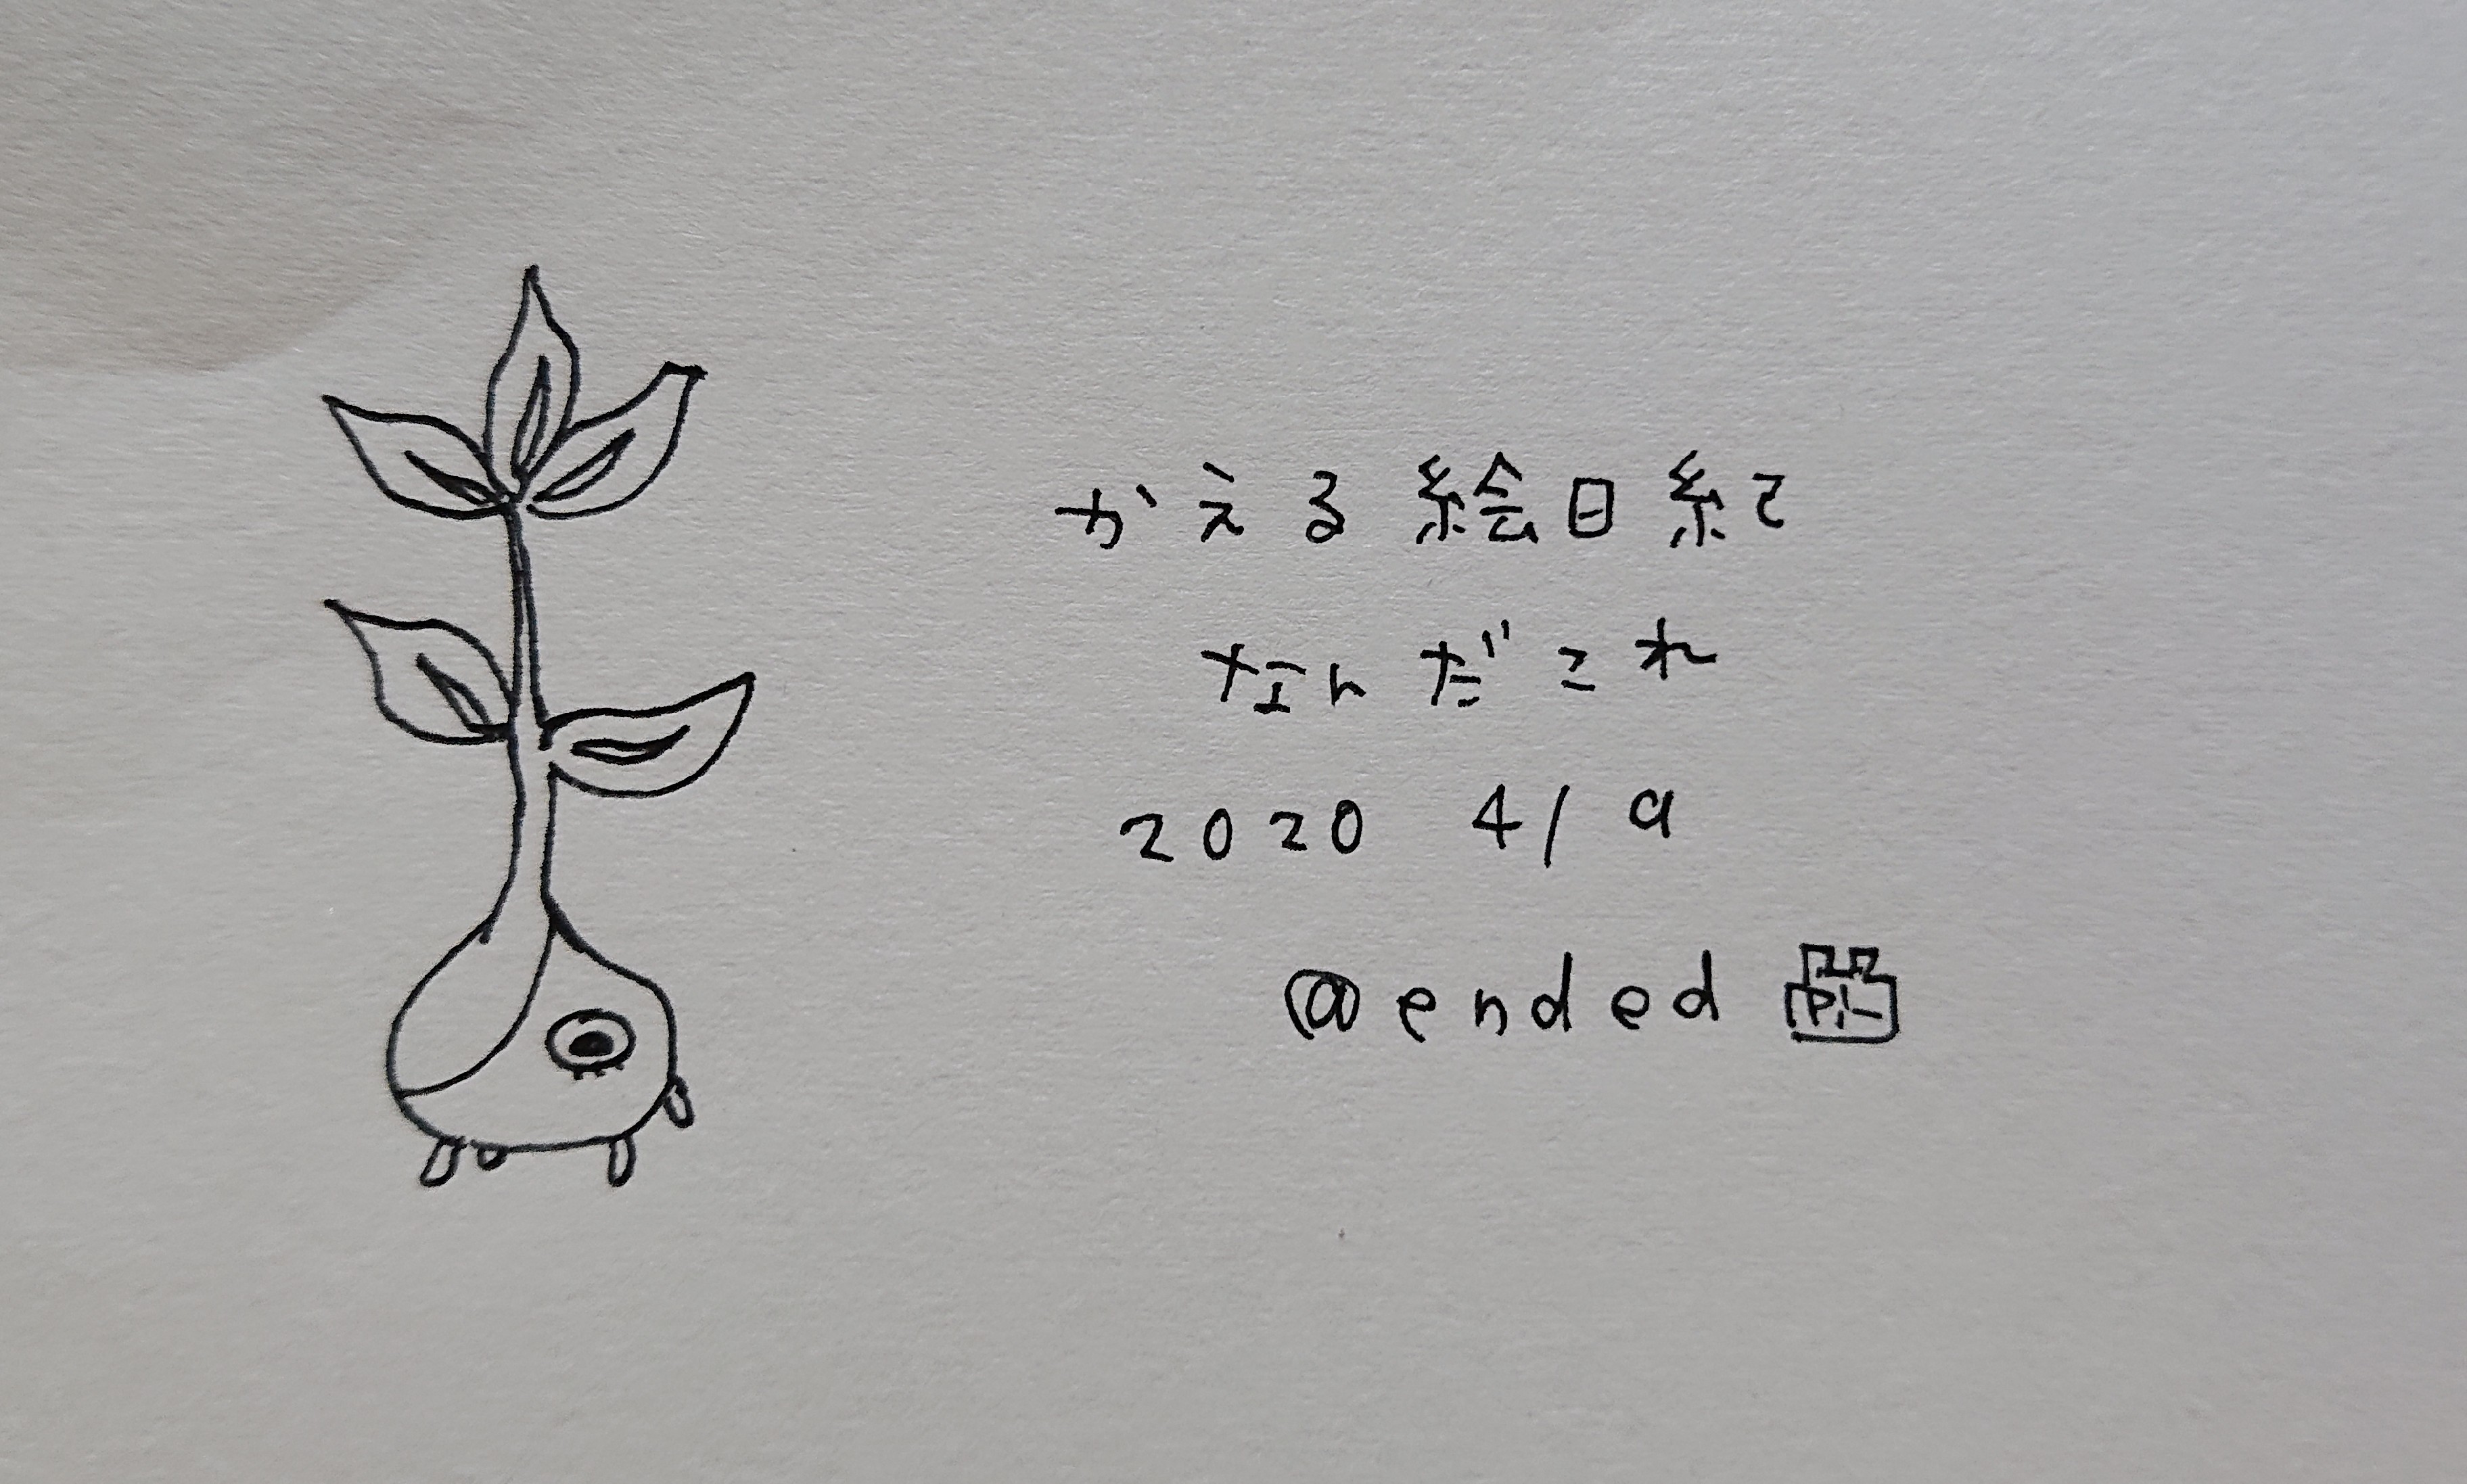 かえる絵日紀
なんだこれ
2020 4/9
@ended